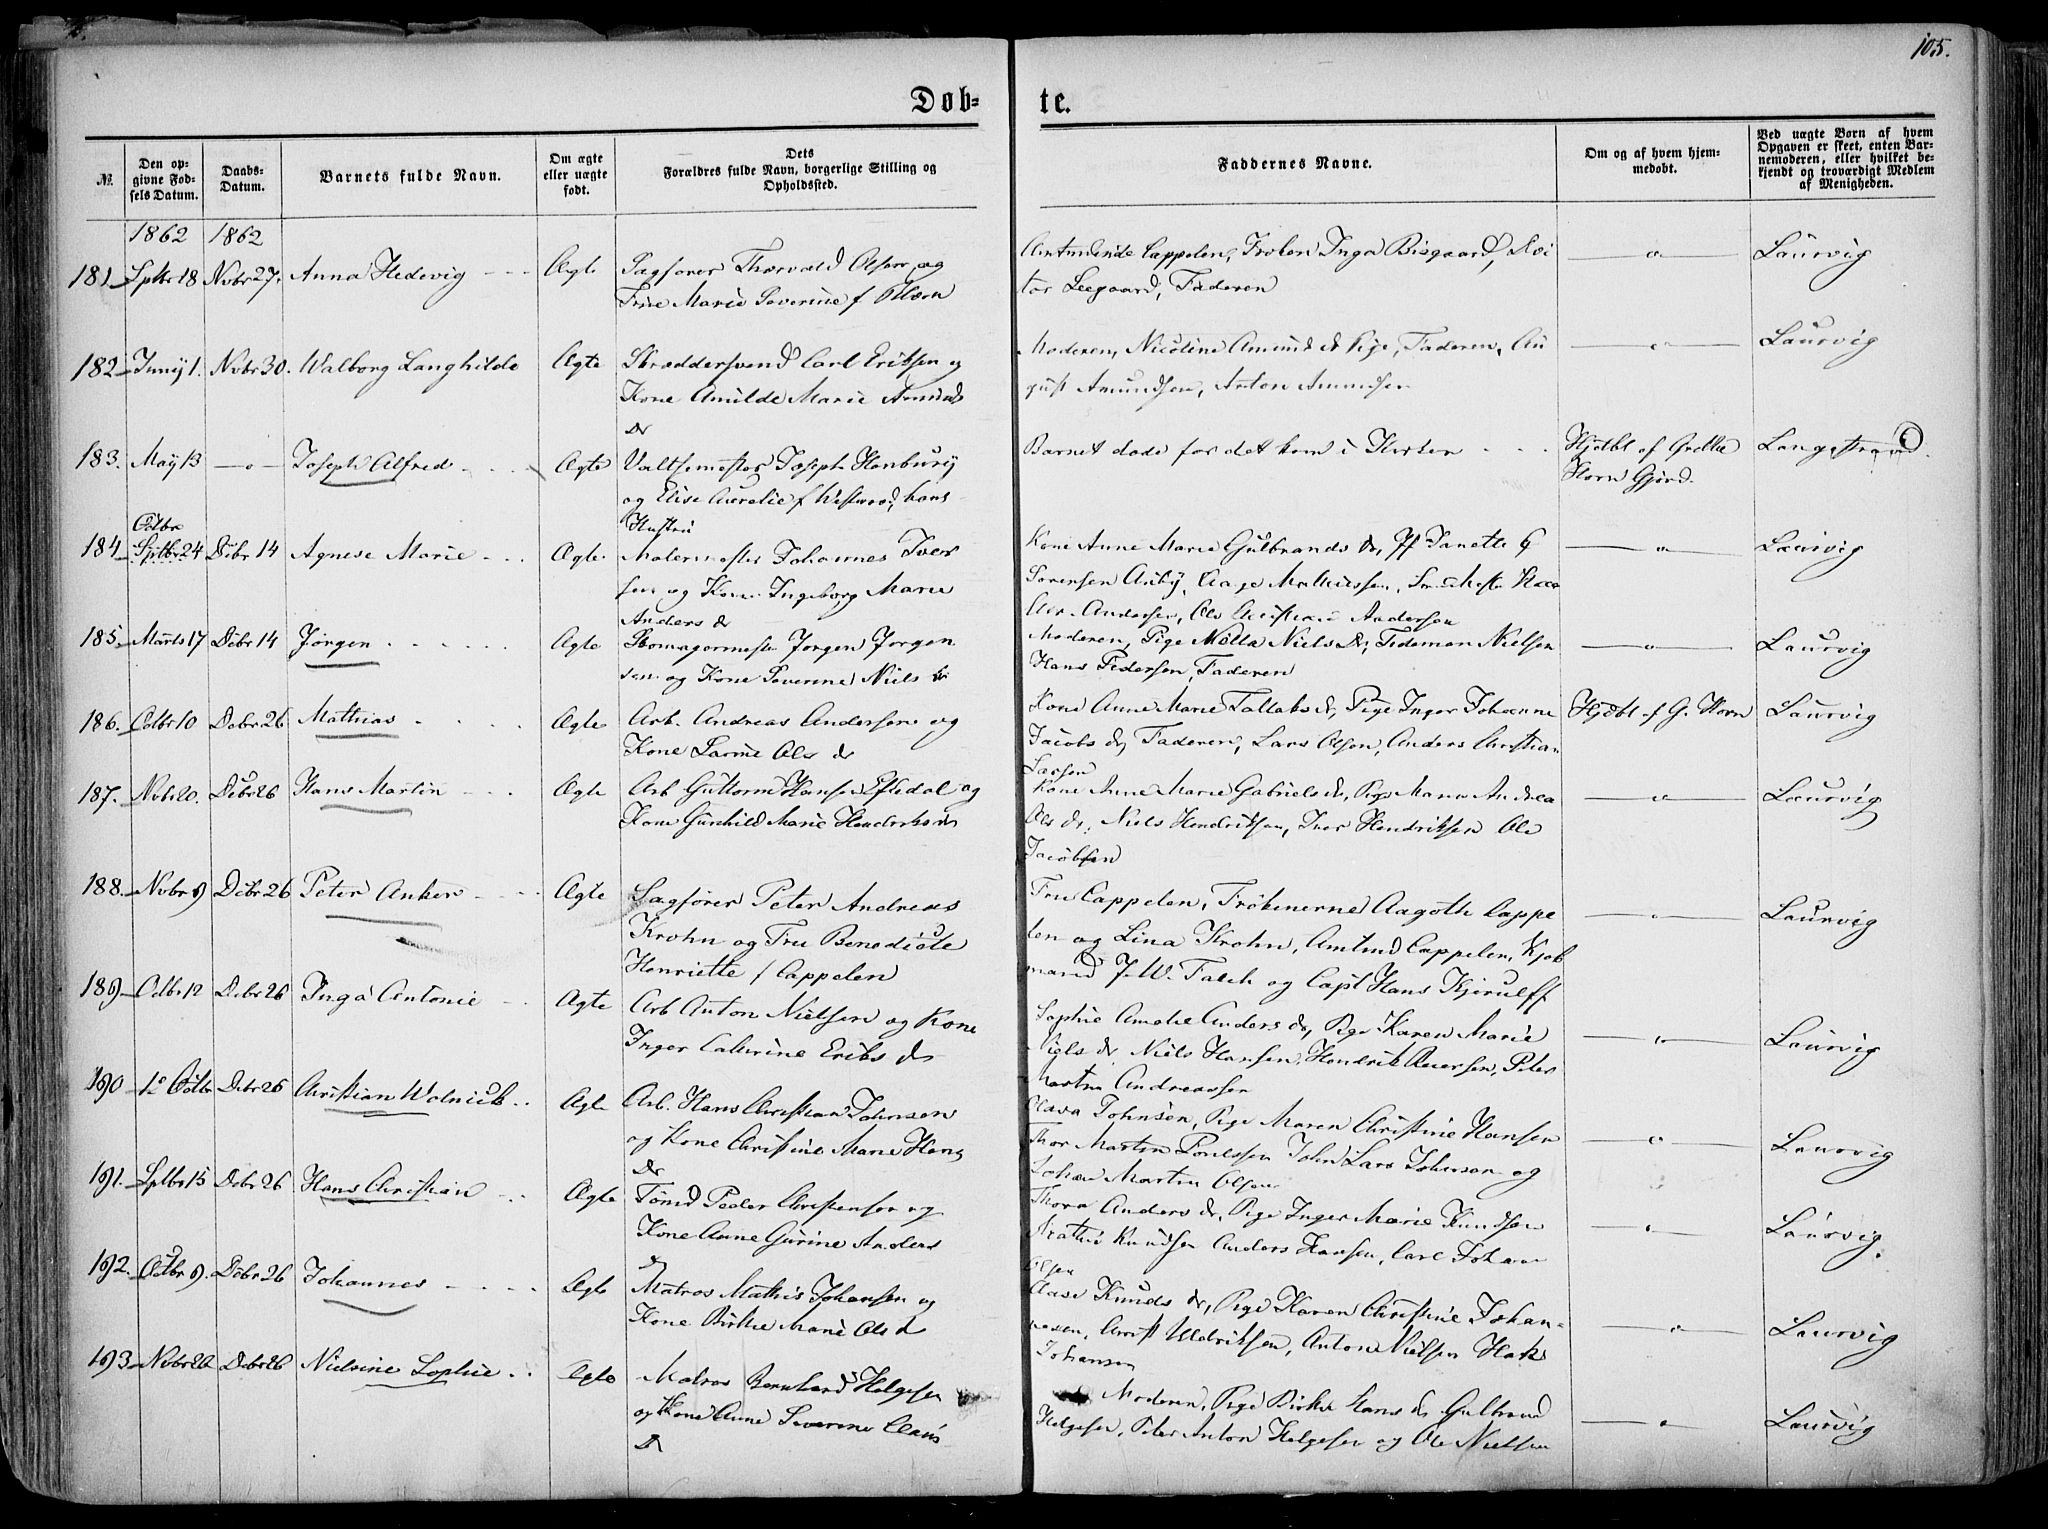 105.
Døb-
te.
№.
Den op-
givne Fød-
sels Datum.
Daabs-
Datum.
Barnets fulde Navn.
Om ægte
eller uægte
født.
Dets
Forældres fulde Navn, borgerlige Stilling og
Opholdssted.
Faddernes Navne.
Om og af hvem hjem-
medøbt.
Ved uægte Børn af hvem
Opgaven er skeet, enten Bar-
nemoderen, eller hvilket be-
kjendt og troværdigt Medlem
af Menigheden.
1862 1862
181 Sptbr 18 Novbr 27. Anna Hedevig Ægte Sagfører Thorvald Olsen og
Frue Marie Severine f
Cappelen, Frøken Inga Bisgaard,
Faderen
Laurvig
182 Junij 1. Novbr 30. Walborg Langhilde Ægte Skræddersvend Carl Eriksen og
Kone Amilde Marie Amunds
Dr
Moderen, Nicoline Amunds dr Pige, Faderen, Au
gust Amundsen, Anton Amundsen
Laurvig
183. May 13 Joseph Alfred Ægte Joseph Hanbury
og Elise Aurelie f Westwood, hans
Hustru
Barnet døde før det kom i Kirken
Hjdbt af Grethe
Horn Gjord.
Langestrand.
184 Octbr
Sptbr 24 Decbr 14 Agnese Marie Ægte Malermester Johannes Iver
sen og Kone Ingeborg Marie
Anders dr
Kone Anne Marie Gulbrands dr, Jf Janette
Sørensen Auby,
Andersen
Laurvig
185. Marts 17 Decbr 14 Jørgen Ægte Skomagermester Jørgen Jørgen
sen og Kone Severine Niels dr
Moderen, Pige Niels Dr, Tideman Nielsen
Hans Pedersen, Faderen
Laurvig
186. Octbr 10 Decbr 26 Mathias Ægte Arb. Andreas Andersen og
Kone Ols dr
Kone Anne Marie Tallaks dr, Pige Inger Johanne
Jacobs dr, Faderen, Lars Olsen, Anders Christian
Larsen
Hjdbt af G. Horn
Laurvig
187. Novbr 20. Decbr 26 Hans Martin Ægte Arb Guttorm Hansen og
Kone Gunhild Marie Hendriks dr
Kone Anne Marie Gabriels dr, Pige Maren Andrea
Ols dr, Niels Hendriksen, Iver Hendriksen Ole
Jacobsen
Laurvig
188. Novbr 9 Decbr 26 Peter Anker Ægte Sagfører Peter Andreas
Krohn og Fru Benedicte
Henriette f Cappelen
Fru Cappelen, Frøkenerne Aagothe Cappe
len og Lina Krohn, Amtmd Cappelen, Kjøb
mand J. W. Falch og Capt Hans Kjerulff
Laurvig
189 Octbr 12 Decbr 26 Inga Antonie Ægte Arb Anton Nielsen og Kone
Inger Cathrine Eriks dr
Sophie Amalie Anders dr, Pige Karen Marie
Niels dr Niels Hansen, Hendrik Iversen, Peter
Martin Andreassen
Laurvig
190 Octbr Decbr 26 Christian Ægte Arb. Hans Christian Johnsen
og Kone Christine Marie Hans
Dr
Johnsen, Pige Maren Christine Hansen
Thor Martin John Lars Johnsen og
Johan Martin Olsen
Laurvig
191. Sptbr 15 Decbr 26 Hans Christian Ægte Tømmd Peder Christensen og
Kone Anne Gurine Anders
dr
Thora Anders dr, Pige Inger Marie Knudsen
Knudsen Anders Hansen, Carl Johan
Olsen
Laurvig
192. Octbr 9. Decbr 26 Johannes Ægte Matros Mathis Johansen og
Kone Birthe Marie Ols d
Knuds dr, Pige Karen Christine Johan-
nesen, Christ Uldriksen, Anton Nielsen
Johansen
Laurvig
193 Novbr 22 Decbr 26 Nielsine Sophie Ægte Matros Bernhard Helgesen
og Kone Anne Severine Claus
Dr
Moderen, Pige Birthe Hans dr Gulbrand
Helgesen, Peter Anton Helgesen og Ole Nielsen
Laurvig